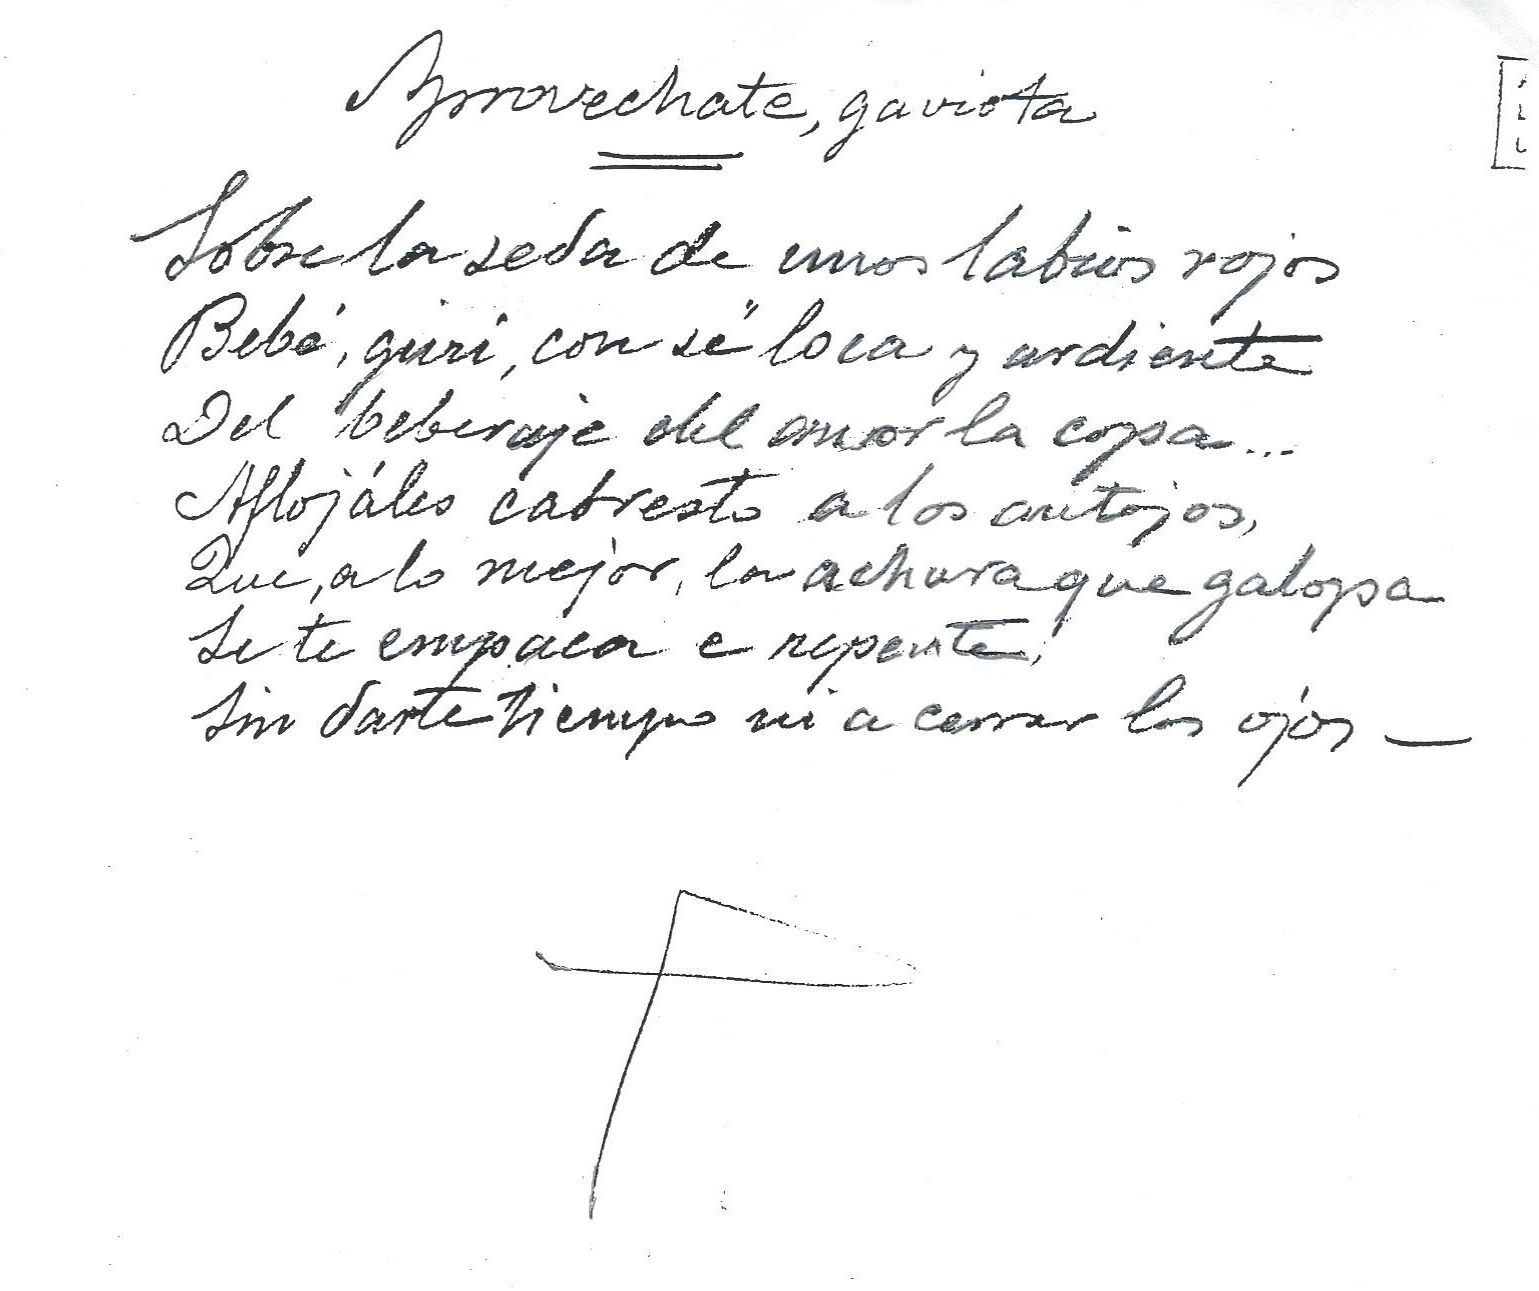 Aprovechate, gaviota
Sobre la seda de unos labios rojos
Bebé, gurí, con sé loca y ardiente
Del beberaje del amor la copa...
Aflojáles cabresto a los antojos,
Que, a lo mejor, la achura que galopa
Se te empaca e repente,
Sin darte tiempo ni a cerrar los ojos —